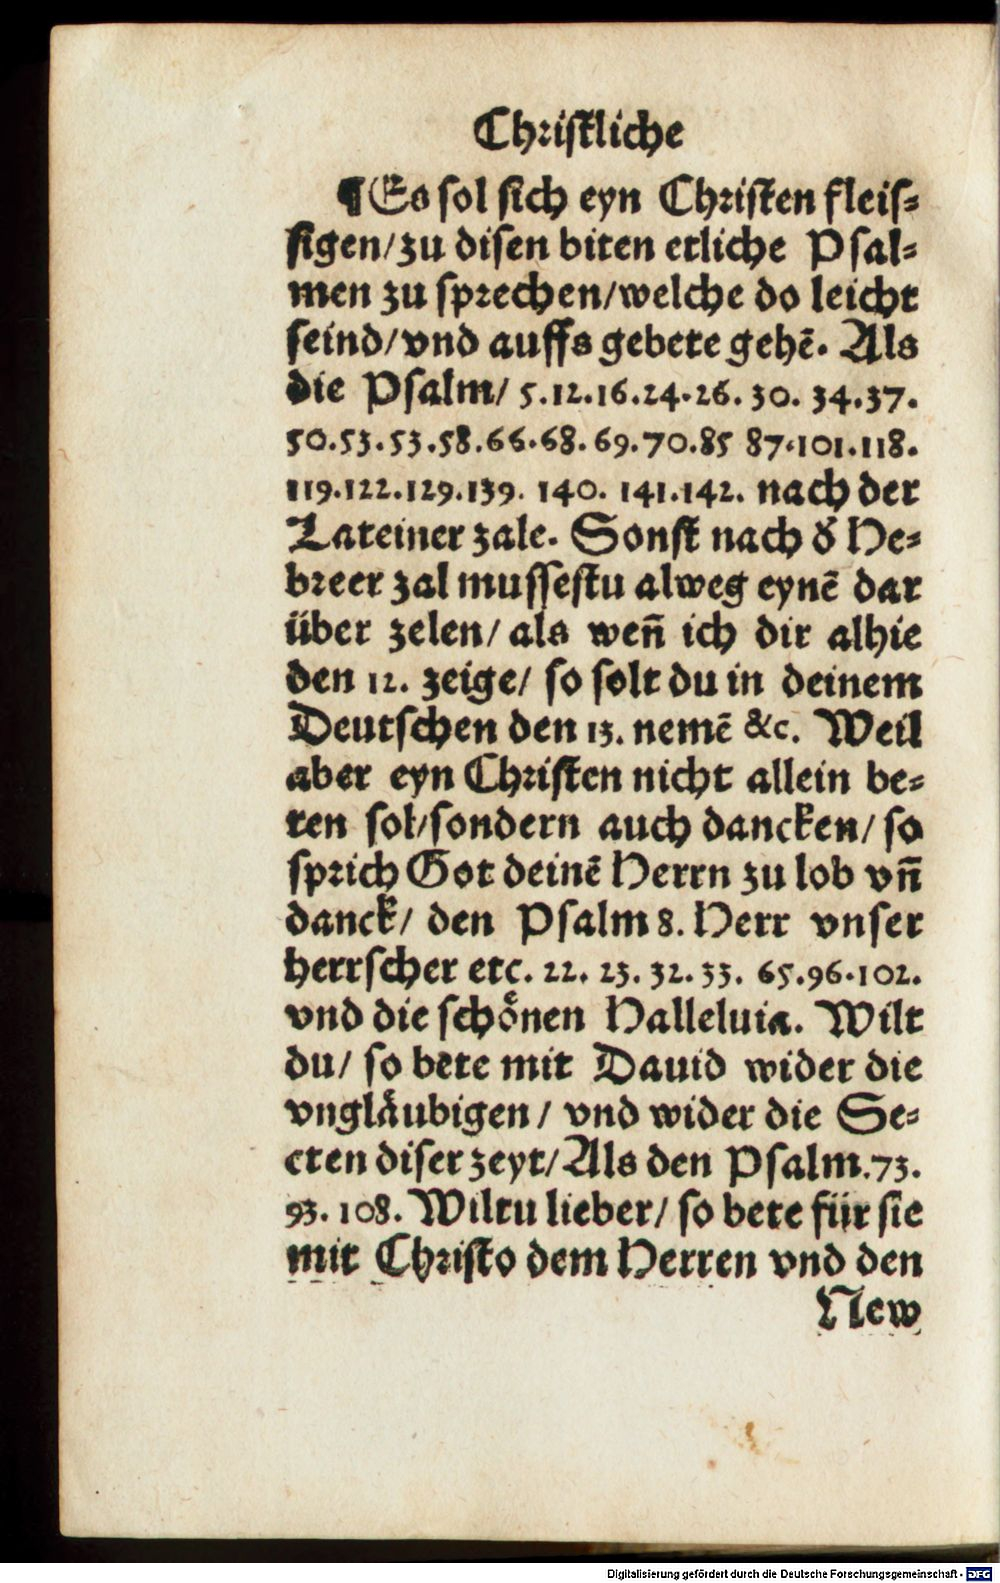 Christliche
¶Es sol sich eyn Christen fleis⸗
sigen/zu disen biten etliche Psal⸗
men zu sprechen/welche do leicht
seind/vnd auffs gebete gehē. Als
die Psalm/ 5.12.16.24.26. 30. 34.37.
50.53.53.58.66.68. 69.70.85 87.101.118.
119.122.129.139. 140. 141.142. nach der
Lateiner zale. Sonst nach d̕ He⸗
breer zal mussestu alweg eynē dar
über zelen/ als wen̄ ich dir alhie
den 12. zeige/ so solt du in deinem
Deutschen den 13. nemē &c. Weil
aber eyn Christen nicht allein be⸗
ten sol/sondern auch dancken/ so
sprich Got deinē Herrn zu lob vn̄
danck/ den Psalm 8. Herr vnser
herrscher etc. 22. 23. 32. 33. 65.96.102.
vnd die schoͤnen Halleluia. Wilt
du/ so bete mit Dauid wider die
vnglaͤubigen/ vnd wider die Se⸗
cten diser zeyt/Als den Psalm.73.
93. 108. Wiltu lieber/ so bete für sie
mit Christo dem Herren vnd den
New
Digitalisierung gefördert durch die Deutsche Forschungsgemeinschaft - DFG